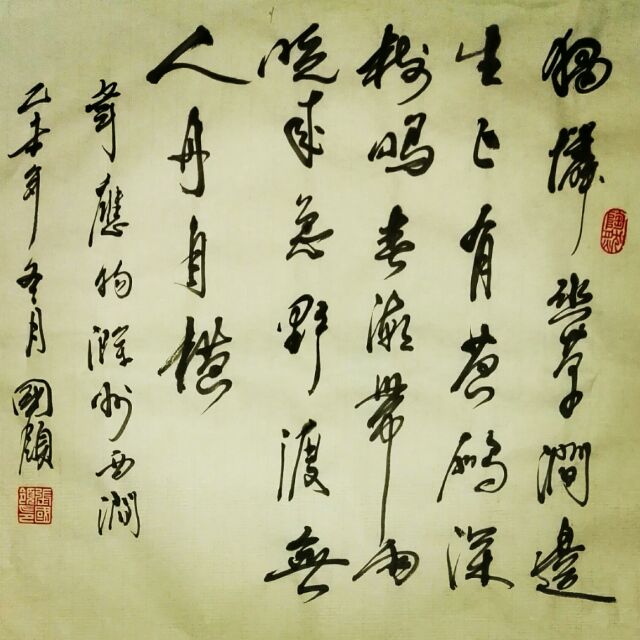 獨憐幽草澗邊
生上有黃鸝深
樹鳴春潮帶雨
晚來急野渡無
人舟自橫
韋應物滁州西澗
乙未年冬月國